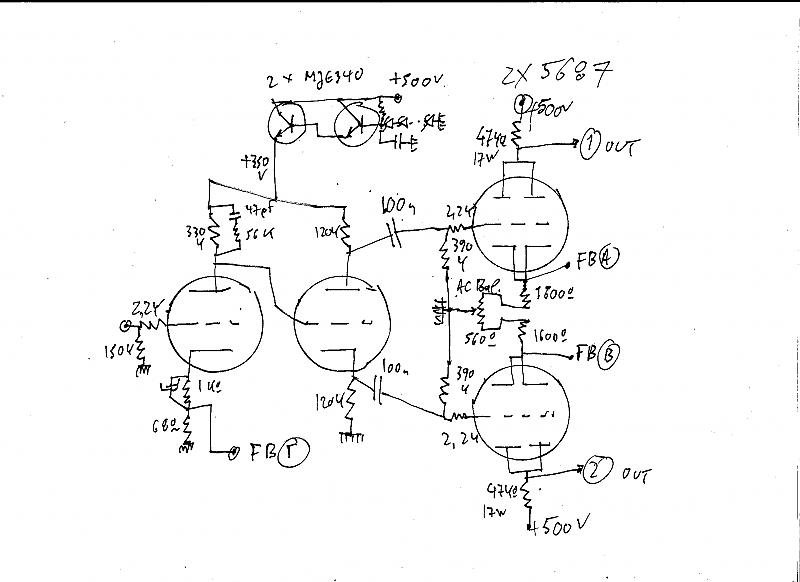 2 x MJE340
+500V
2X 5687
+500V
47KΩ
17W
1 OUT
+350
V
47pf
330
K
56K
120K
100n
2,2K
390
K
FB A
AC Bal.
1800Ω
560Ω
1600Ω
FB B
2,2K
150K
1KΩ
68Ω
FB Γ
120K
100n
390
K
2,2K
47KΩ
17W
2 OUT
+500V